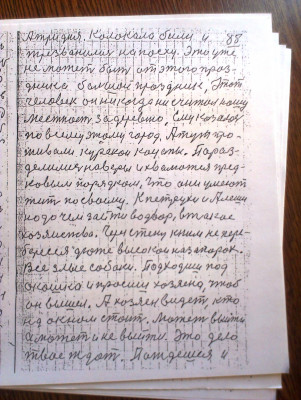 Атридня. Колокола били и 88
трезвонили на пасху. Это уже
не может быть от этого праз-
дника большой праздник, Этот
человек он никогда ни считал нашу
местност за деревню. Ему казалос
по всему этому город. А тут про-
живали куркои кацапы. Пораз-
делились на веры и хвалются пред-
ковым порядком, что они умеют
жит по своему. К петрухи и Алеши
надо чем зайти во двор, в такое
хозяиства. Чуи стену книи не пере-
берешся дюже высокои на запорах.
Все злые собаки. Подходиш под
окошко и просиш хозяена, чтоб
он вышел. А хозяен видет кто
под окном стоит. Может выйти
а может и не выйти. Это дело
твое ждат. Пождешся и